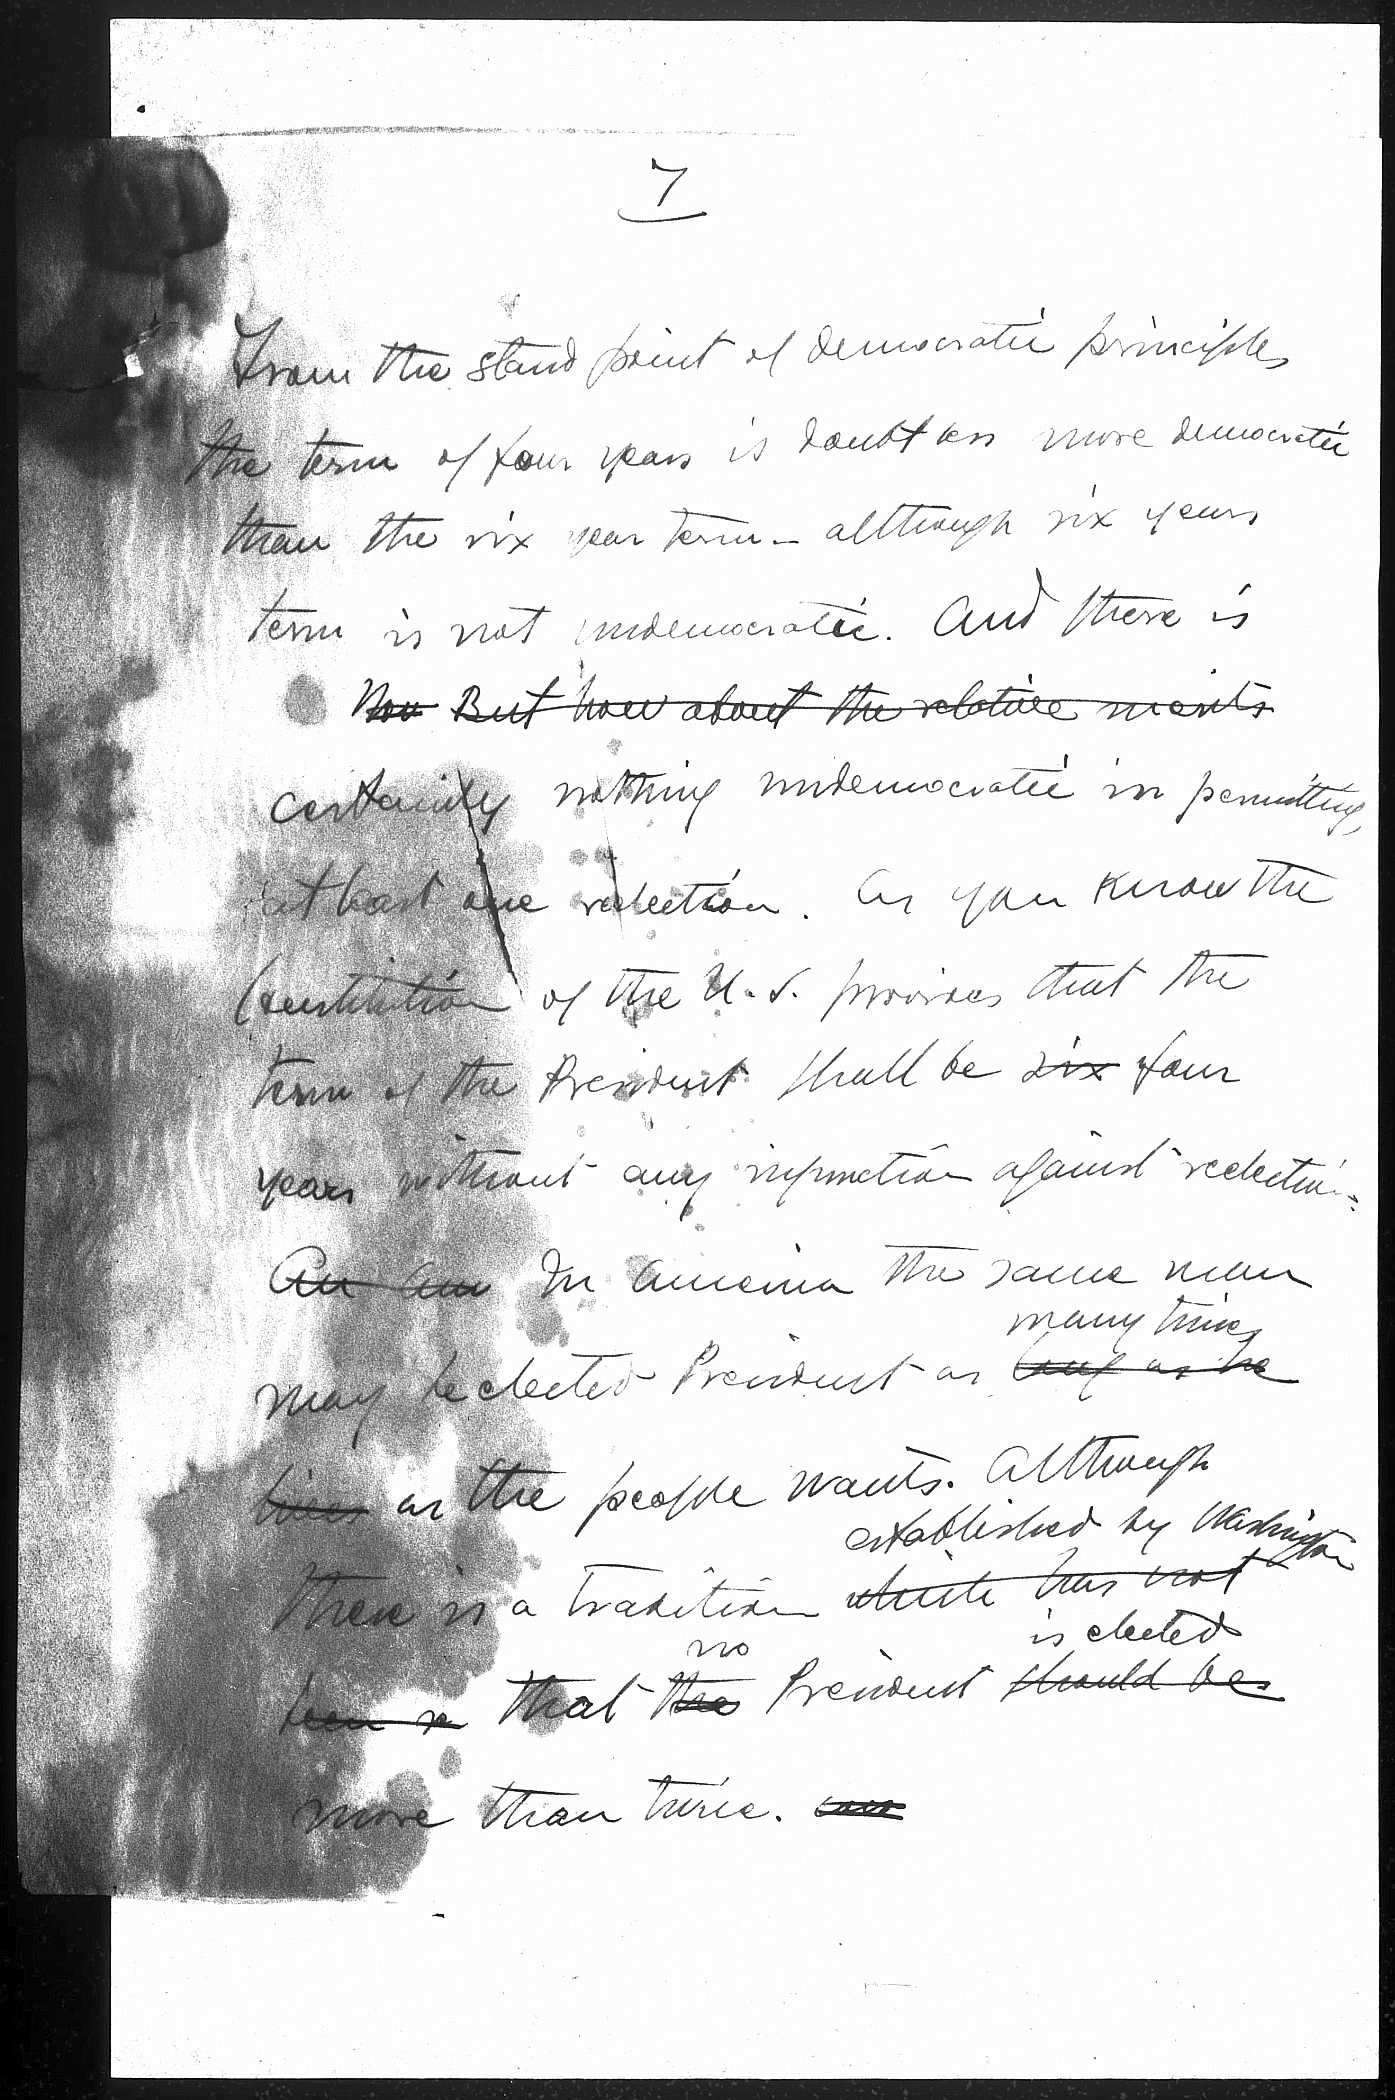 7
From the stand point of democratic principles
the term of four years is doubtless more democratic
than the six year term - although six years
term is not undemocratic. And there is
Now But how about the relative merits
certainly nothing undemocratic in permitting,
at least one reelection. As you know the
Constitution of the U.S. provides that the
term of the President shall be six four
years without any injunction against reelection.
An am In America the same man
many times
may be elected President as long as he
lives as the people wants. Although
established by Washington
there is a tradition which has not
no
is elected
been that the President should be
more than twice.